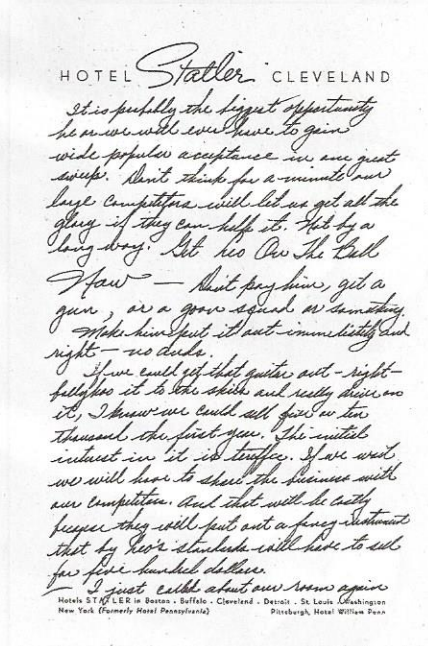 HOTEL Statler CLEVELAND
It is probably the biggest opportunity
he or we will ever have to gain
wide popular acceptance in one great
sweep. Don't think for a minute our
large competitors will let us get all the
glory if they can help it. Not by a
long way. Get Leo On The Ball
Now — Don't pay him, get a
gun, or a goon squad or something.
Make him put it out immediately and
right — no duds.
If we could get that guitar out - right -
ballyhoo it to the skies and really drive on
it, I know we could sell five or ten
thousand the first year. The initial
interest in it is terrific. If we wait
we will have to share the business with
our competitors. And that will be costly
because they will put out a fancy instrument
that by Leo's standards will have to sell
for five hundred dollars.
— I just called about our room again
Hotels STATLER in Boston · Buffalo · Cleveland · Detroit · St. Louis · Washington
New York (Formerly Hotel Pennsylvania) Pittsburgh, Hotel William Penn